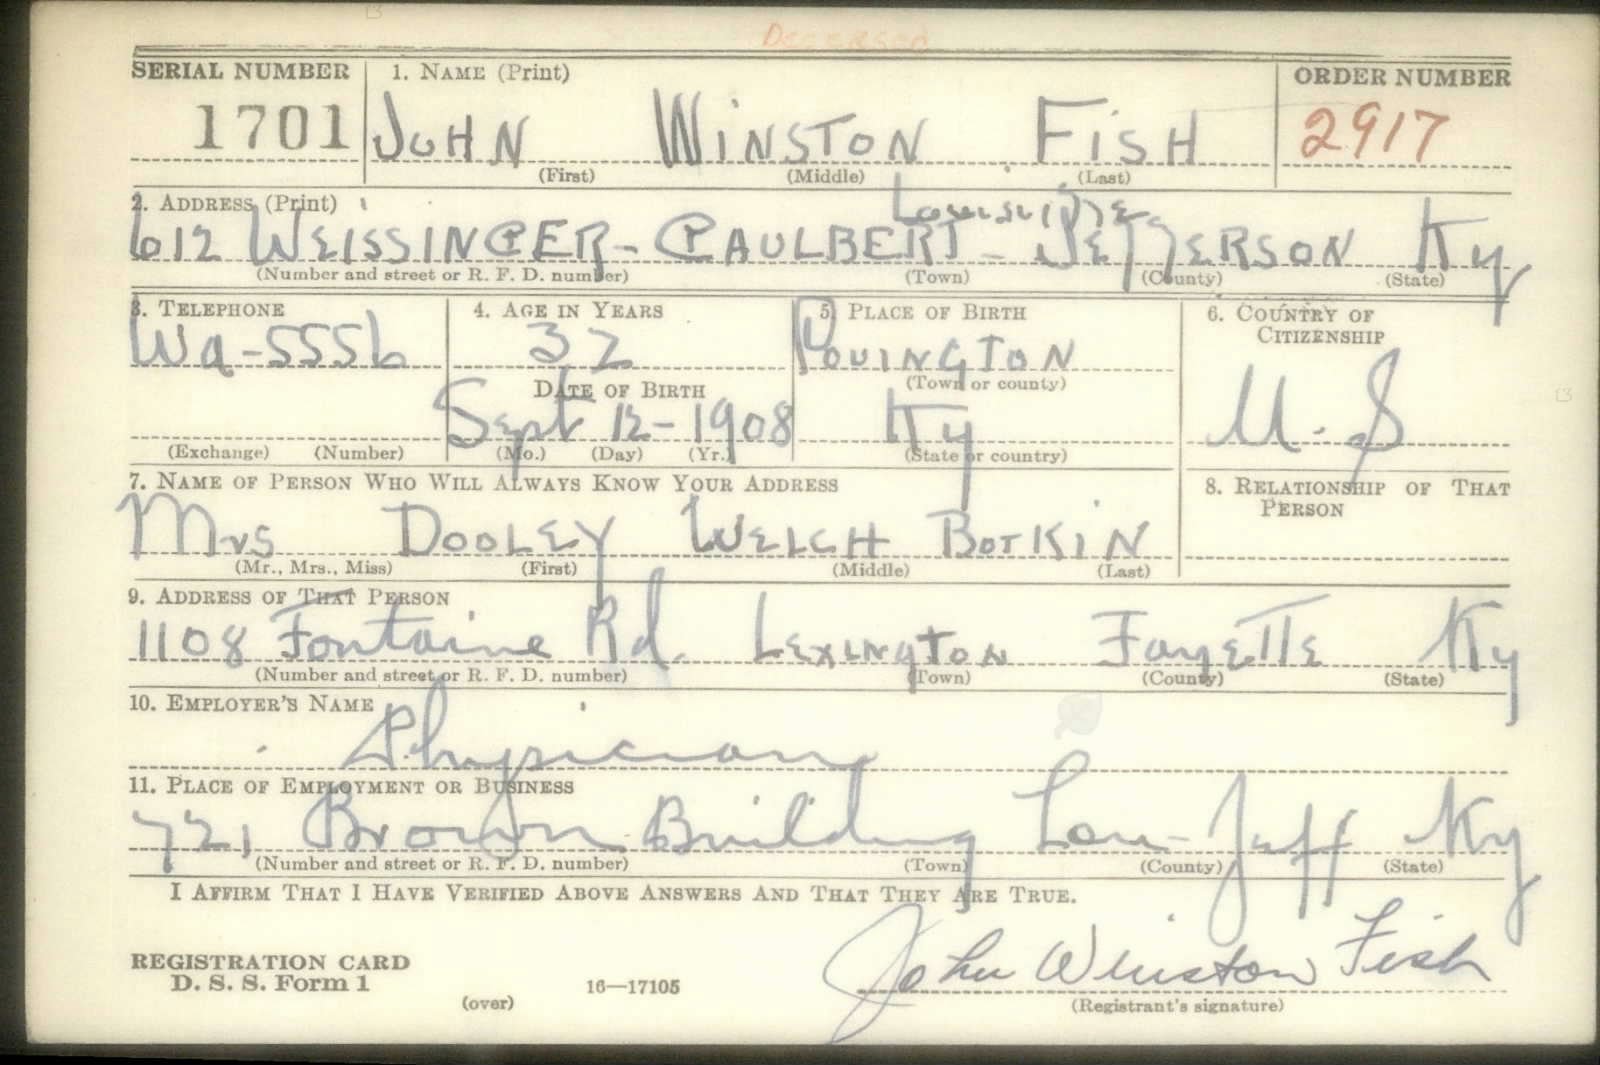 DECEASED
SERIAL NUMBER 1. NAME (Print) ORDER NUMBER
1701 JOHN WINSTON FISH 2917
(First) (Middle) (Last)
2. ADDRESS (Print) Louisville
612 WEISSINGER-GAULBERT - JEFFERSON Ky
(Number and street or R. F. D. number) (Town) (County) (State)
3. TELEPHONE 4. AGE IN YEARS 5. PLACE OF BIRTH 6. COUNTRY OF
CITIZENSHIP
Wa-5556 32 COVINGTON
(Town or county)
DATE OF BIRTH
Sept 12-1908 Ky U.S
(Exchange) (Number) (Mo.) (Day) (Yr.) (State or country)
7. NAME OF PERSON WHO WILL ALWAYS KNOW YOUR ADDRESS 8. RELATIONSHIP OF THAT
PERSON
Mrs DOOLEY WELCH BOTKIN
(Mr., Mrs., Miss) (First) (Middle) (Last)
9. ADDRESS OF THAT PERSON
1108 Fontaine Rd. LEXINGTON FAYETTE Ky
(Number and street or R. F. D. number) (Town) (County) (State)
10. EMPLOYER'S NAME
Physician
11. PLACE OF EMPLOYMENT OR BUSINESS
721 Brown Building Lou- Jeff Ky
(Number and street or R. F. D. number) (Town) (County) (State)
I AFFIRM THAT I HAVE VERIFIED ABOVE ANSWERS AND THAT THEY ARE TRUE.
John Winston Fish
REGISTRATION CARD
D. S. S. Form 1
(over) 16—17105 (Registrant's signature)